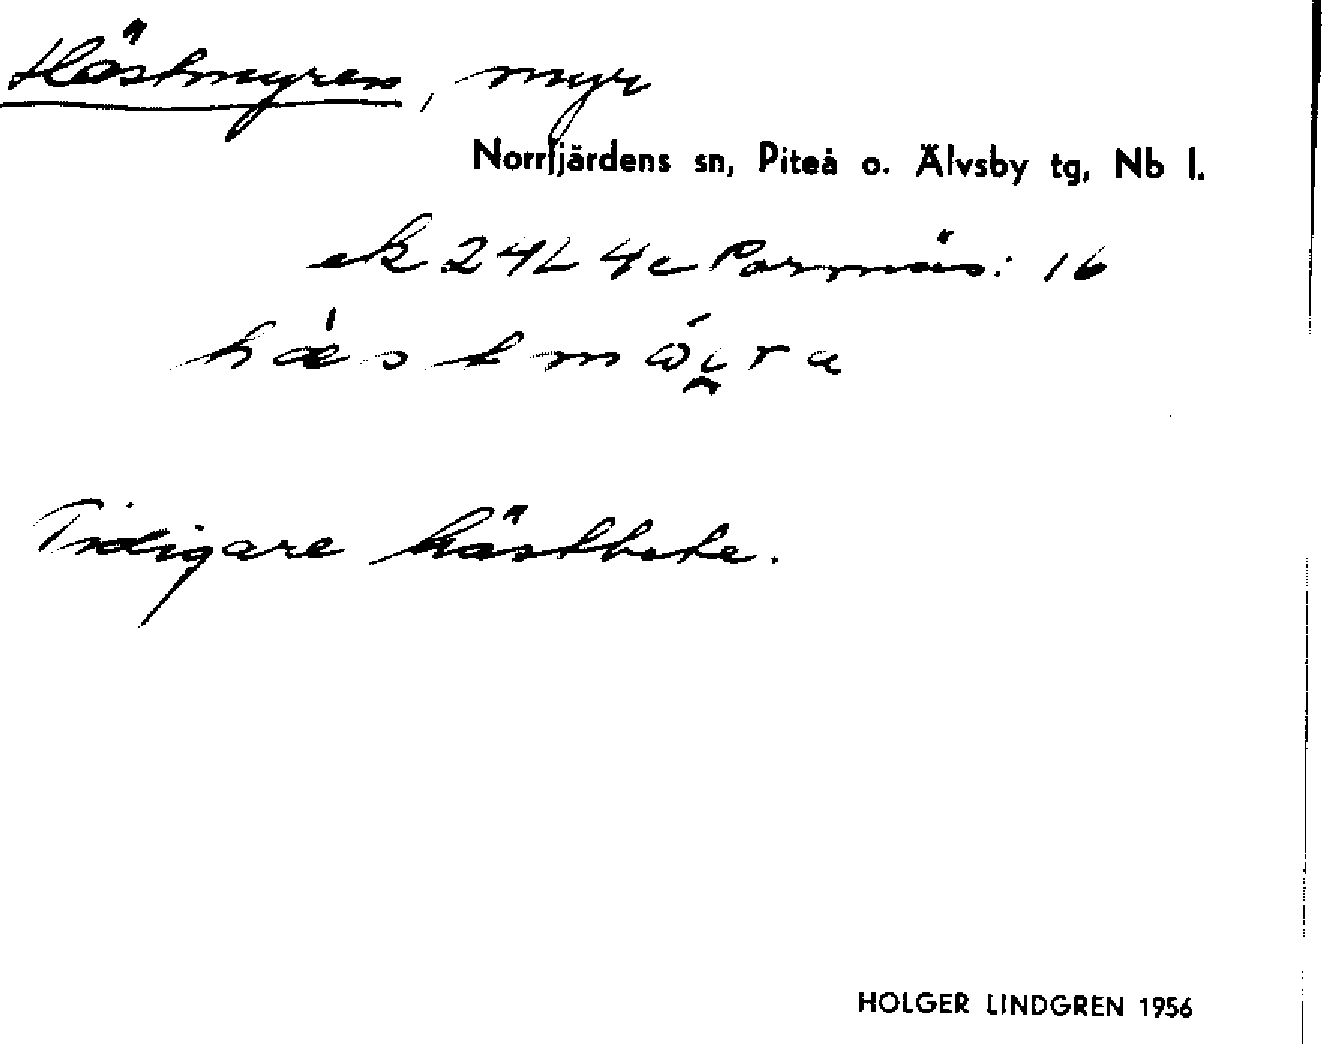 Hästmyren, myr
Norrfjärdens sn, Piteå o. Älvsby tg, Nb l.
ek 24L 4c Porsnäs: 16
Tidigare hästbete.
HOLGER LINDGREN 1956